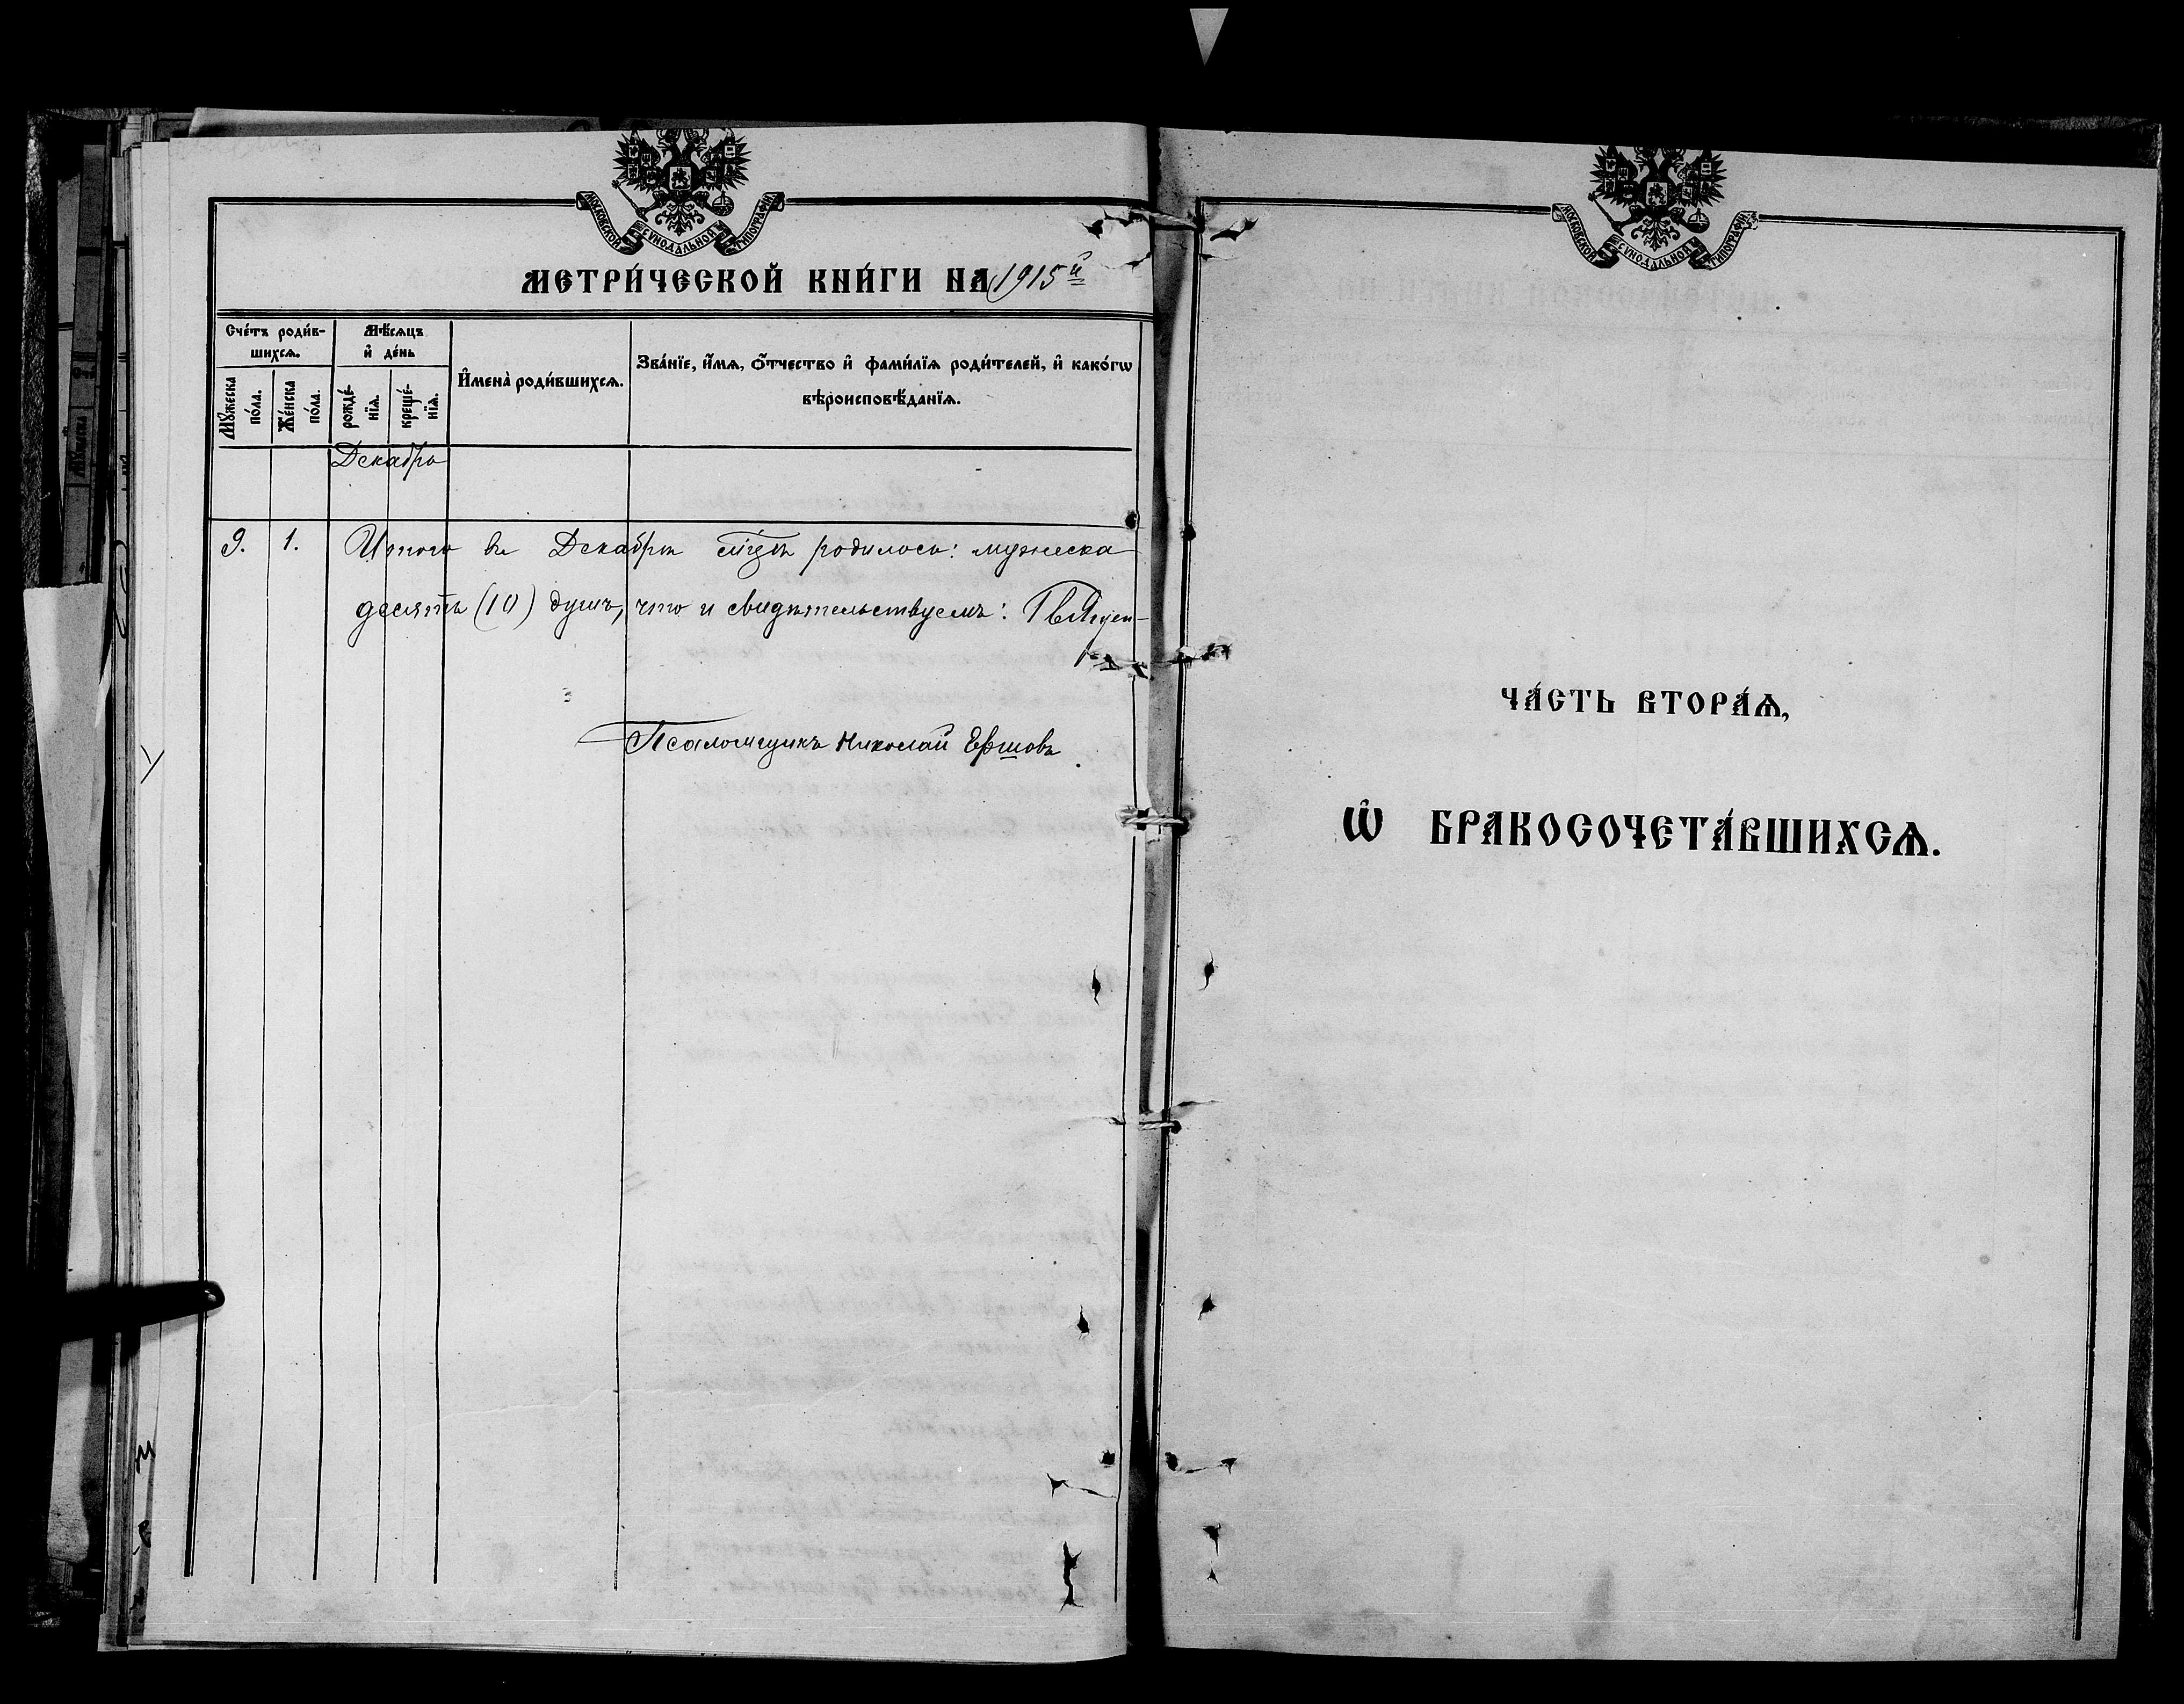 МОСКОВСКОЙ СѴНОДАЛЬНОЙ ТИПОГРАФІИ
МЕТРИ́ЧЕСКОЙ КНИ́ГИ НА 1915й
Сче́тъ роди́в-
шихсѧ.
Мѣ́сѧцъ
и҆ де́нь
И҆мена̀ роди́вшихсѧ.
Зва́нїе, и҆́мѧ, ѻ҆́тчество и҆ фами́лїѧ роди́телей, и҆ како́гѡ
вѣроисповѣ́данїѧ.
Мꙋ́жеска
по́ла.
Же́нска
по́ла.
рожде́-
нїѧ.
креще́-
нїѧ.
Декабрь
9. 1. Итого въ Декабрѣ мѣсяцѣ родилось: мужеска
десять (10) душъ, что и свидѣтельствуемъ:
Псаломщикъ Николай Ершовъ
МОСКОВСКОЙ СѴНОДАЛЬНОЙ ТИПОГРАФІИ
ЧА́СТЬ ВТОРА́Ѧ,
Ѡ҆ БРАКОСОЧЕТА́ВШИХСѦ.